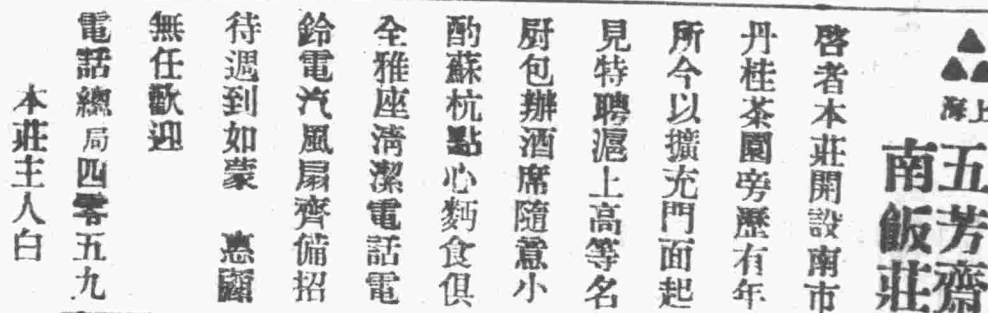 ▲▲▲
上海
五芳齋
南飯莊
啓者本莊開設南市
丹桂茶園旁歷有年
所今以擴充門面起
見特聘滬上高等名
厨包辦酒席隨意小
酌蘇杭點心麪食俱
全雅座清潔電話電
鈴電汽風扇齊備招
待週到如蒙　惠顧
無任歡迎
電話總局四零五九
本莊主人白